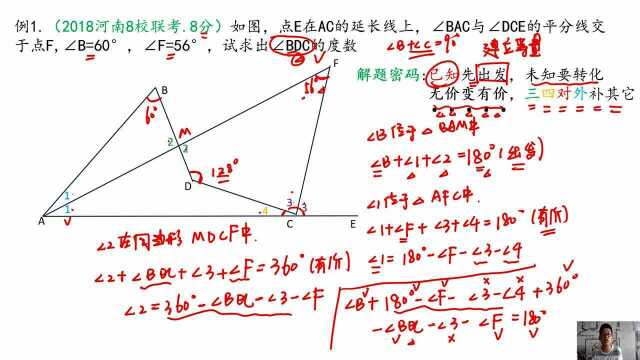 例1.（2018河南8校联考.8分）如图，点E在AC的延长线上，∠BAC与∠DCE的平分线交
于点F，∠B=60°，∠F=56°，试求出∠BDC的度数
∠B+∠C=90°
解题密码:已知先出发，未知要转化
无价变有价，三四对外补其它
F
56°
B
60°
M
2 2
D
128°
1
1
4
3
3
A
C
E
∠B位于△BAM中
∠B+∠1+∠2=180°(出发)
∠1位于△AFC中
∠1+∠F+∠3+∠4=180°(有价)
∠1=180°-∠F-∠3-∠4
∠2在四边形MDCF中
∠2+∠BDC+∠3+∠F=360°(有价)
∠2=360°-∠BDC-∠3-∠F
∠B+180°-∠F-∠3-∠4+360°
-∠BDC-∠3-∠F=180°